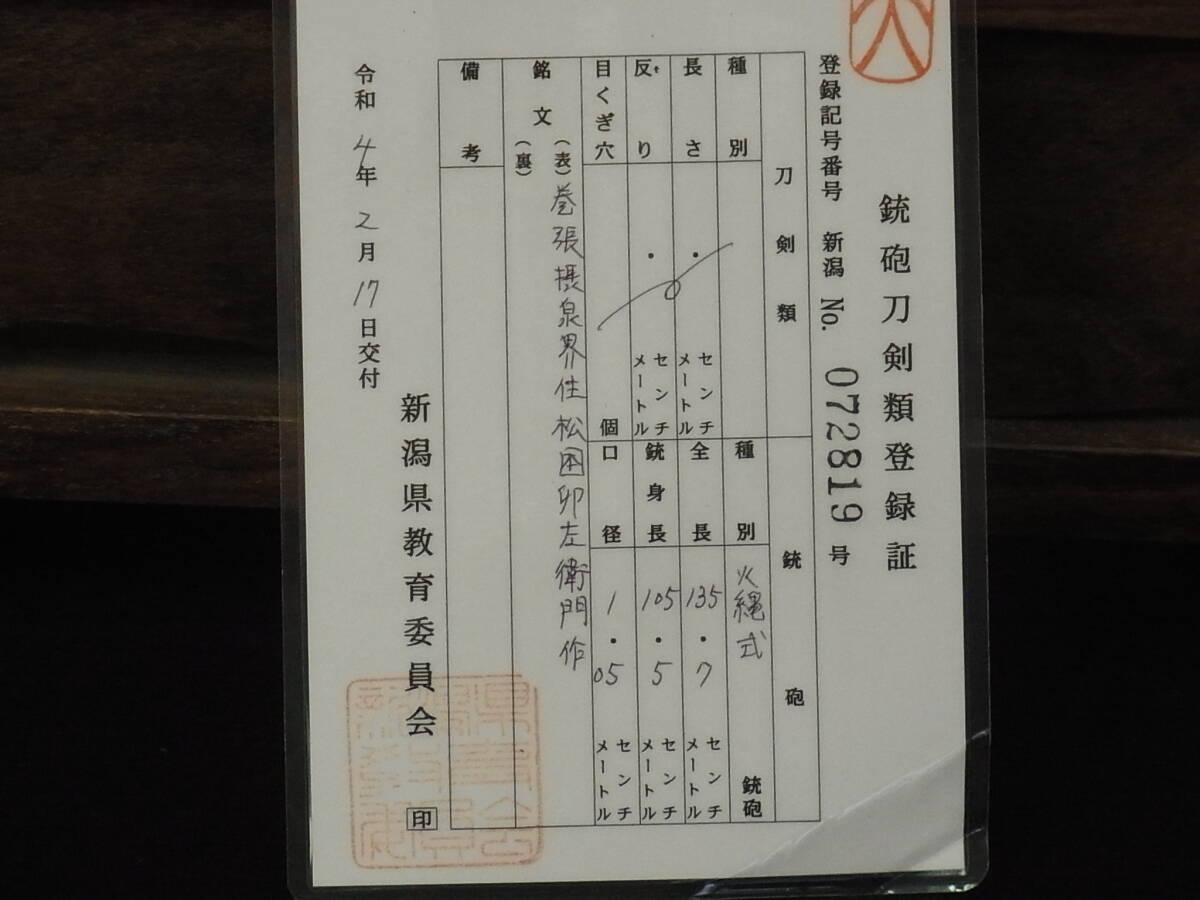 銃砲刀剣類登録証
登録記号番号 新潟 No. 072819 号
刀剣類
種別
長さ ・ センチメートル
反り ・ センチメートル
目くぎ穴 個
銃砲
種別 火縄式 銃砲
全長 135・7 センチメートル
銃身長 105・5 センチメートル
口径 1・05 センチメートル
銘文 (表) 巻張摂泉界住松田卯左衛門作
(裏)
備考
令和4年2月17日交付
新潟県教育委員会 印